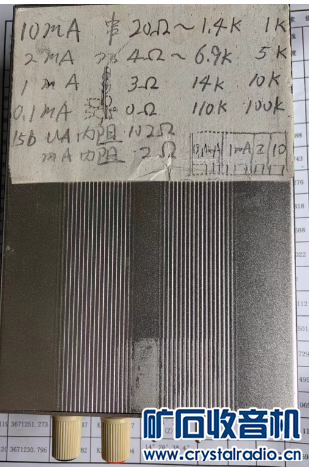 10mA 串 20Ω~1.4K 1K
2 mA 4Ω~6.9K 5K
1 mA 3Ω 14K 10K
0.1mA 0Ω 110K 100K
150 UA内阻 102Ω
mA内阻 2Ω
0.1mA 1mA 2 10
3671251.273
3671230.796
矿石收音机
www.crystalradio.cn